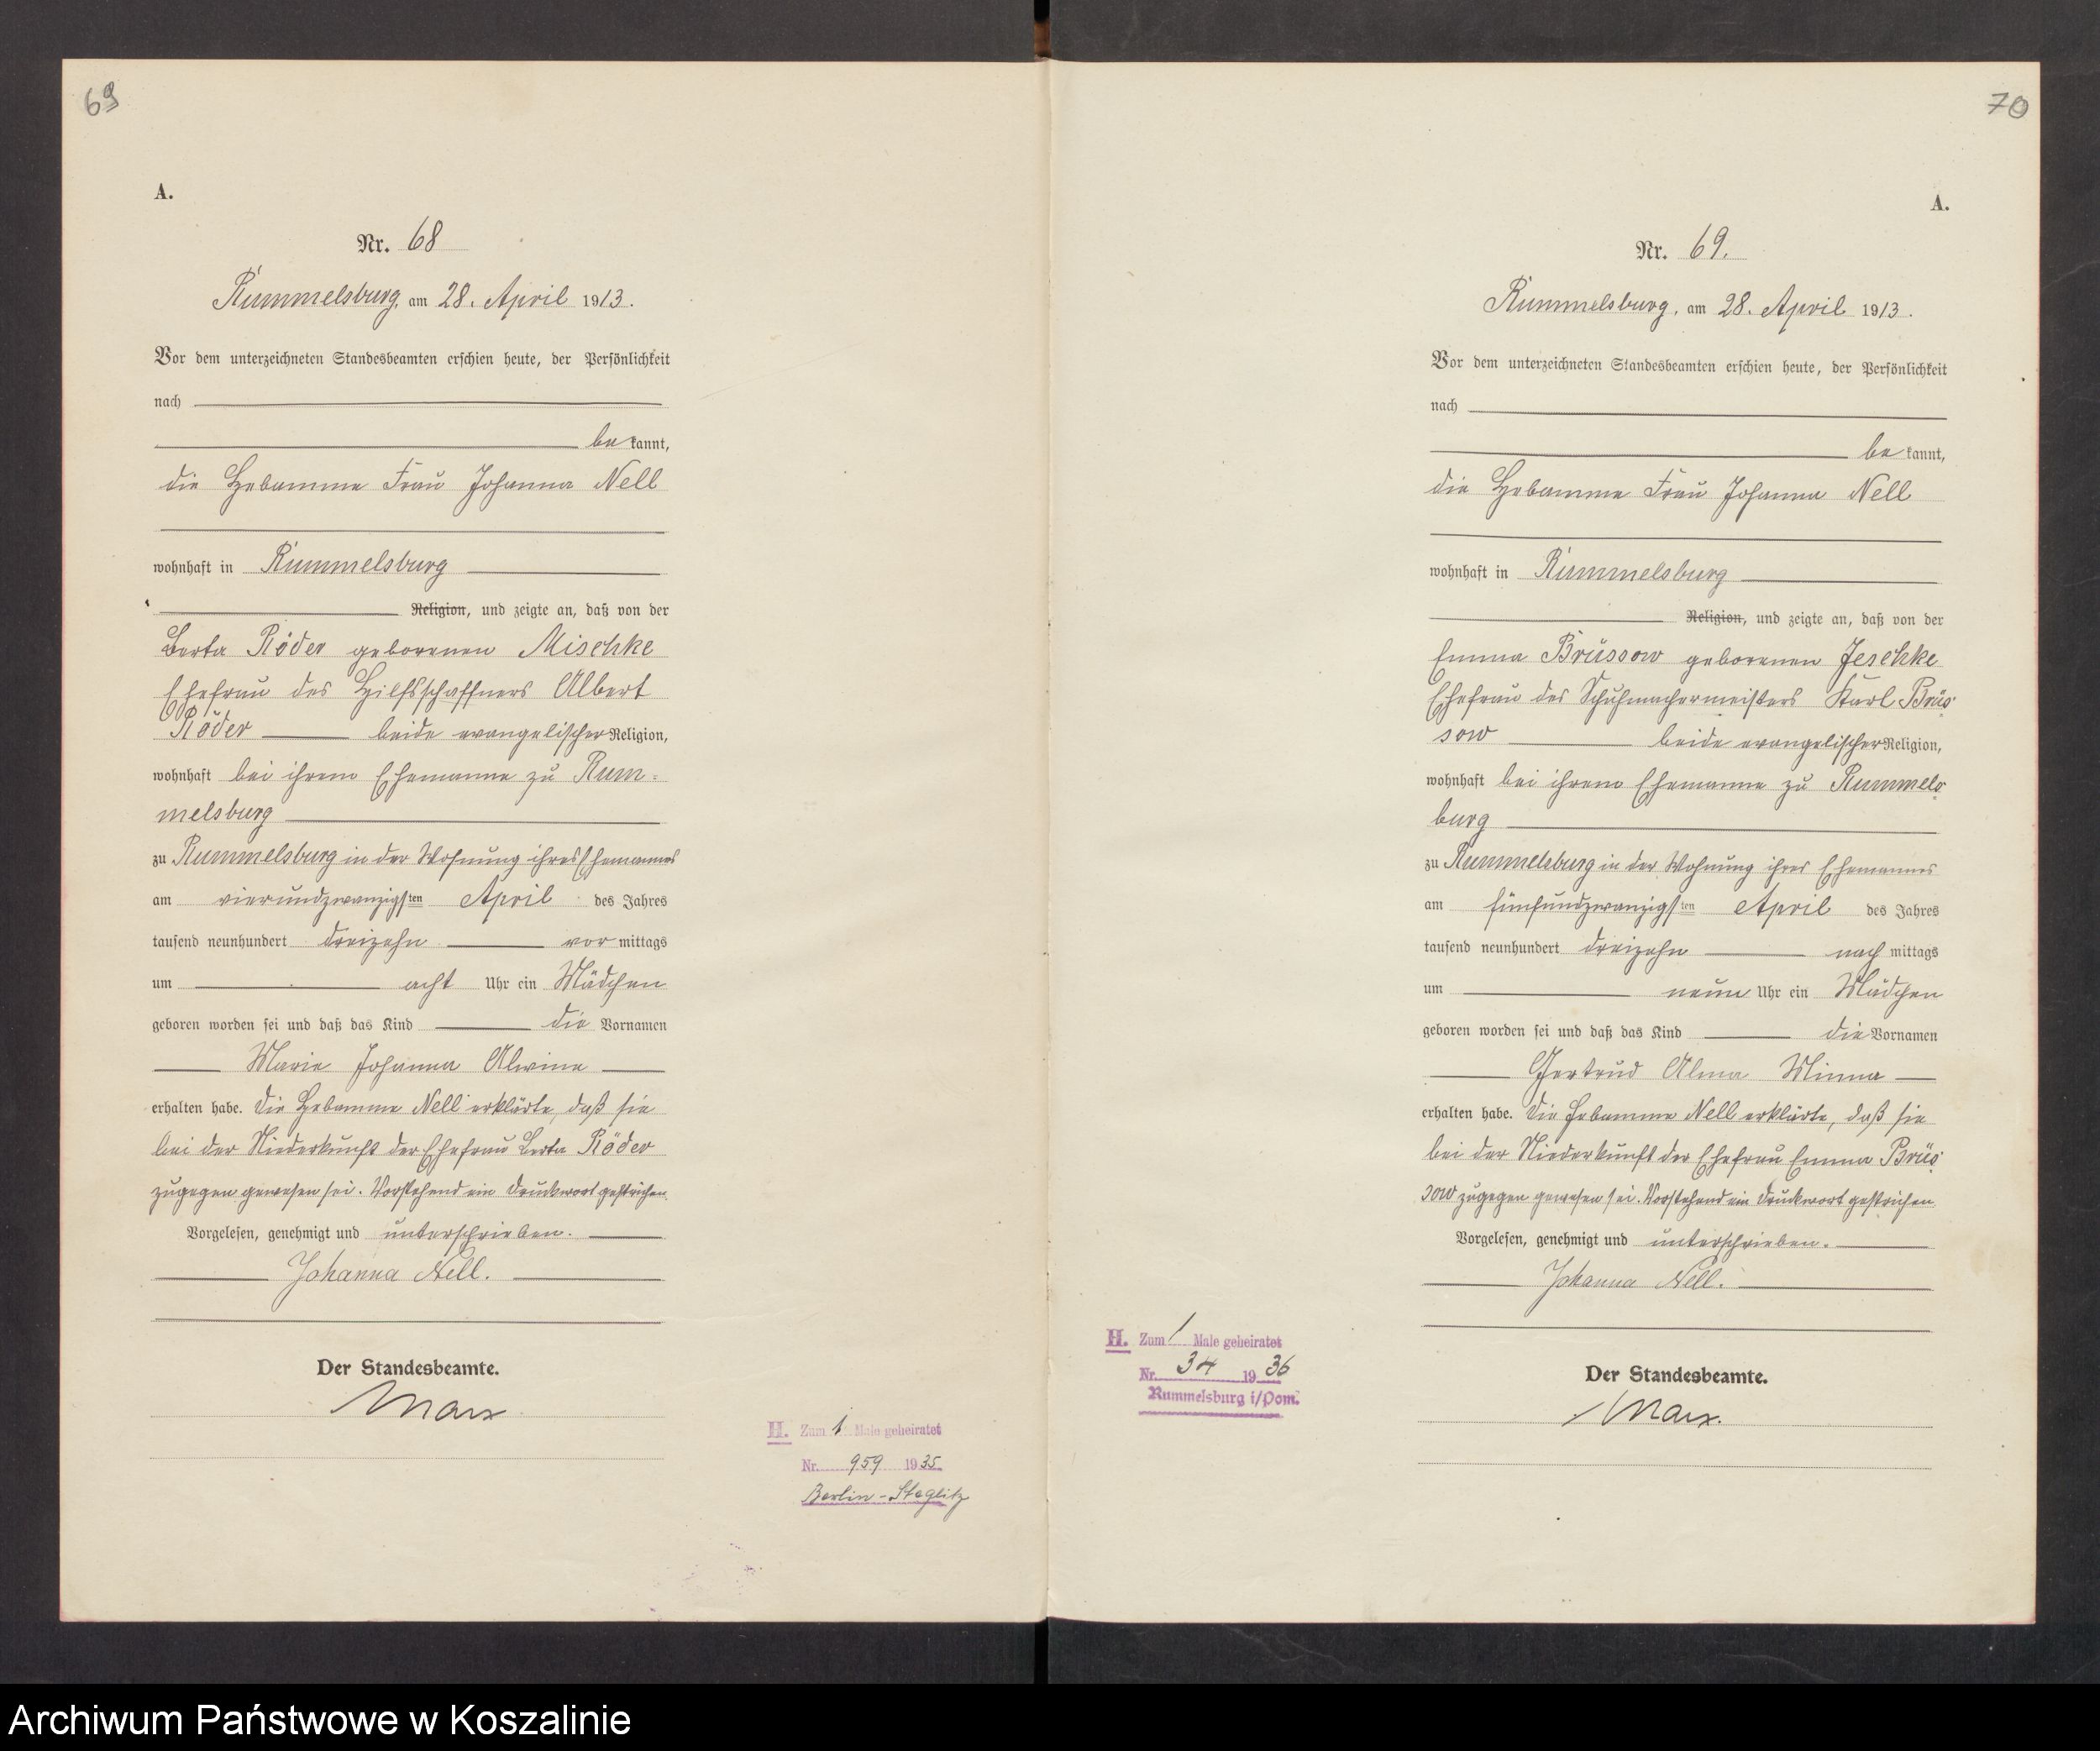 69
A.
Nr. 68
Rummelsburg, am 28. April 1913.
Vor dem unterzeichneten Standesbeamten erschien heute, der Persönlichkeit
nach
be kannt,
die Hebamme Frau Johanna Nell
wohnhaft in Rummelsburg
Religion, und zeigte an, daß von der
Berta Röder geborenen Mischke
Ehefrau des Hilfsschaffners Albert
Röder beide evangelischer Religion,
wohnhaft bei ihrem Ehemanne zu Rum=
melsburg
zu Rummelsburg in der Wohnung ihres Ehemannes
am vierundzwanzigsten April des Jahres
tausend neunhundert dreizehn vor mittags
um acht Uhr ein Mädchen
geboren worden sei und daß das Kind die Vornamen
Marie Johanna Alwine
erhalten habe. Die Hebamme Nell erklärte, daß sie
bei der Niederkunft der Ehefrau Berta Röder
zugegen gewesen sei. Vorstehend ein Druckwort gestrichen.
Vorgelesen, genehmigt und unterschrieben.
Johanna Nell.
Der Standesbeamte.
Marx
H. Zum 1 Male geheiratet
Nr. 959 1935
Berlin-Steglitz
70
A.
Nr. 69.
Rummelsburg, am 28. April 1913.
Vor dem unterzeichneten Standesbeamten erschien heute, der Persönlichkeit
nach
be kannt,
die Hebamme Frau Johanna Nell
wohnhaft in Rummelsburg
Religion, und zeigte an, daß von der
Emma Brüssow geborenen Jeschke
Ehefrau des Schuhmachermeisters Karl Brüs=
sow beide evangelischer Religion,
wohnhaft bei ihrem Ehemanne zu Rummels=
burg
zu Rummelsburg in der Wohnung ihres Ehemannes
am fünfundzwanzigsten April des Jahres
tausend neunhundert dreizehn nach mittags
um neun Uhr ein Mädchen
geboren worden sei und daß das Kind die Vornamen
Gertrud Alma Minna
erhalten habe. Die Hebamme Nell erklärte, daß sie
bei der Niederkunft der Ehefrau Emma Brüs=
sow zugegen gewesen sei. Vorstehend ein Druckwort gestrichen.
Vorgelesen, genehmigt und unterschrieben.
Johanna Nell.
H. Zum 1 Male geheiratet
Nr. 34 1936
Rummelsburg i/Pom.
Der Standesbeamte.
Marx.
Archiwum Państwowe w Koszalinie